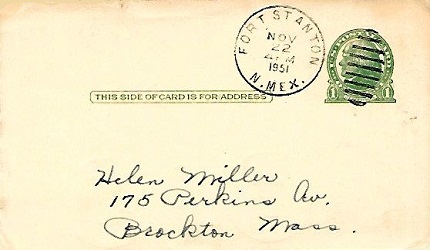 FORT STANTON
NOV
22
4 PM
1951
N. MEX.
THIS SIDE OF CARD IS FOR ADDRESS
1 1
Helen Miller
175 Perkins Av.
Brockton Mass.